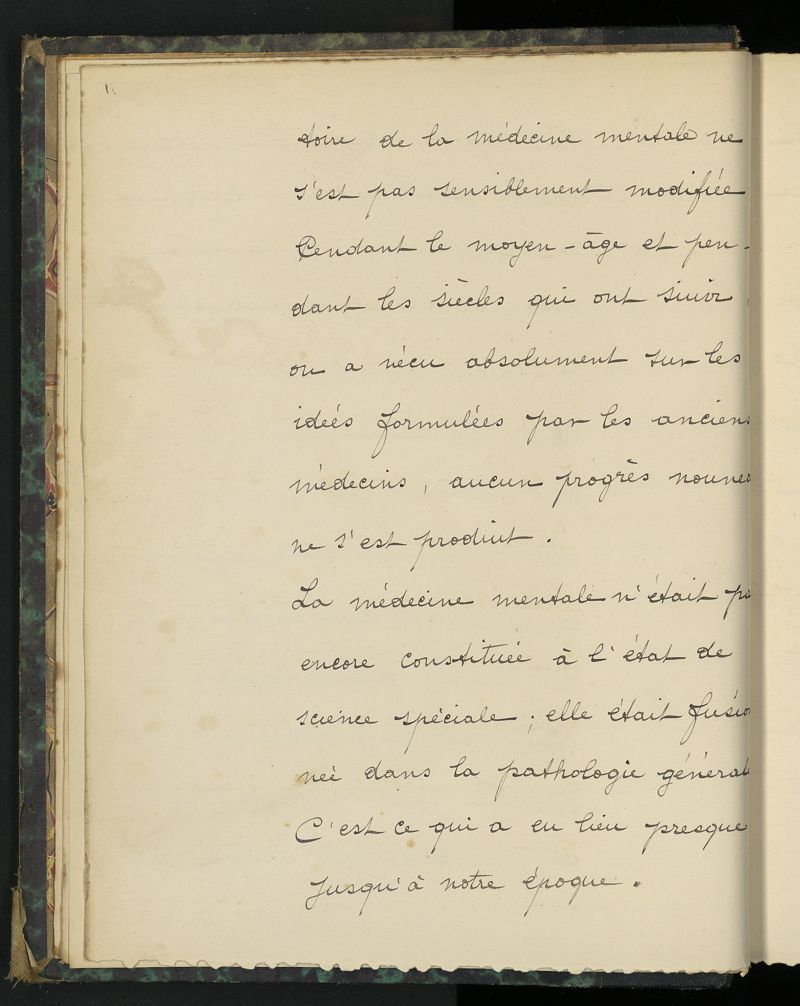 toire de la médecine mentale ne
s'est pas sensiblement modifiée
Pendant le moyen-âge et pen-
dant les siècles qui ont suivi,
on a vécu absolument sur les
ideés formulées par les anciens
médecins, aucun progrès nouve
ne s'est produit.
La médecine mentale n'était pa
encore constituée à l'état de
science spéciale; elle était fusio
neé dans la pathologie général
C'est ce qui a eu lieu presque
jusqu'à notre époque.